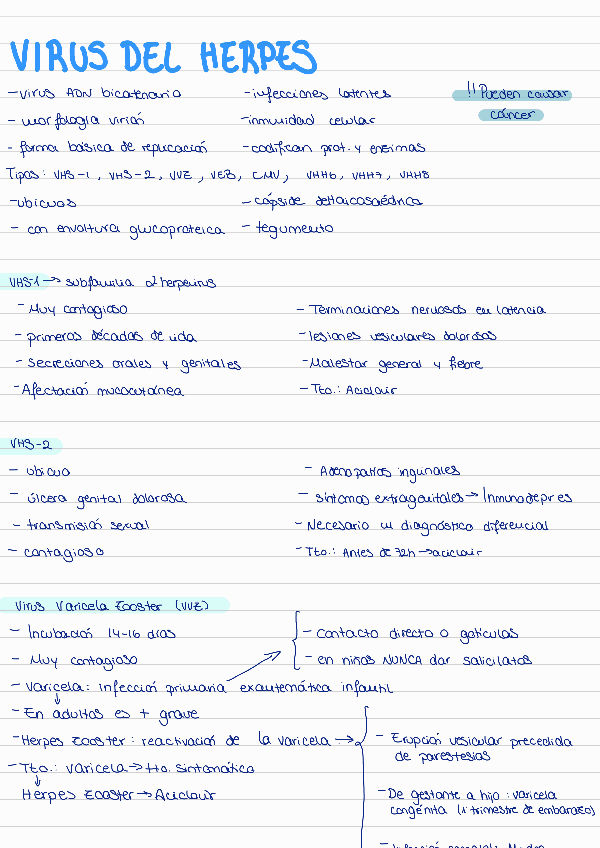 VIRUS DEL HERPES
- virus ADN bicatenario
- infecciones latentes
!! Pueden causar
cáncer
- morfología virión
- inmunidad celular
- forma básica de replicación
- codifican prot. y enzimas
Tipos: VHS-1, VHS-2, VVZ, VEB, CMV, VHH6, VHH7, VHH8
- ubicuos
- cápside deltaicosaédrica
- con envoltura glucoproteica
- tegumento
VHS-1 → subfamilia α herpevirus
- Muy contagioso
- Terminaciones nerviosas en latencia
- primeras décadas de vida
- lesiones vesiculares dolorosas
- Secreciones orales y genitales
- Malestar general y fiebre
- Afectación mucocutánea
- Tto.: Aciclovir
VHS-2
- ubicuo
- Adenopatías inguinales
- úlcera genital dolorosa
- síntomas extragenitales → Inmunodepres
- transmisión sexual
- Necesario un diagnóstico diferencial
- contagioso
- Tto.: Antes de 72h → aciclovir
Virus Varicela Zooster (VVZ)
- Incubación 14-16 días
- contacto directo o gotículas
- Muy contagioso
- en niños NUNCA dar salicilatos
- Varicela: infección primaria exantemática infantil
- En adultos es + grave
- Herpes Zooster: reactivación de la varicela →
- Erupción vesicular precedida
de parestesias
- Tto.: Varicela → tto. sintomático
Herpes Zooster → Aciclovir
- De gestante a hijo: varicela
congénita (1º trimestre de embarazo)